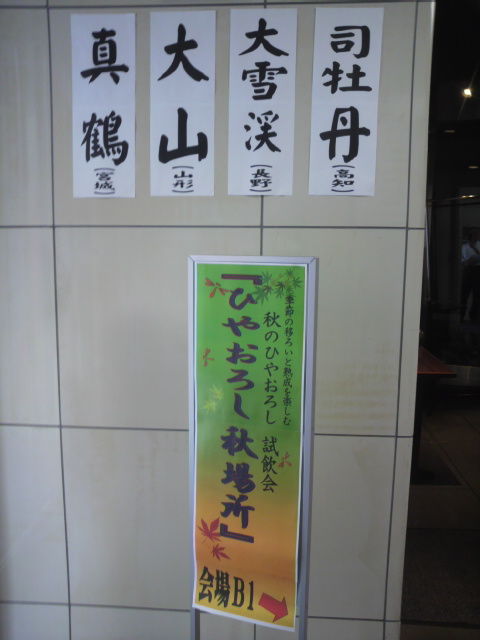 司牡丹
(高知)
大雪渓
(長野)
大山
(山形)
真鶴
(宮城)
季節の移ろいと熟成を楽しむ
秋のひやおろし 試飲会
『ひやおろし秋場所』
会場B1